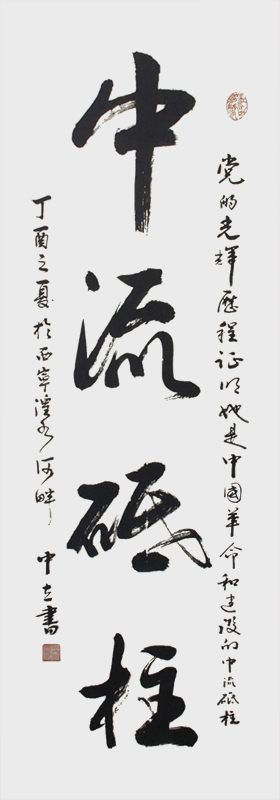 党的光辉历程证明她是中国革命和建设的中流砥柱
中流砥柱
丁酉之夏于西宁湟水河畔
中立书